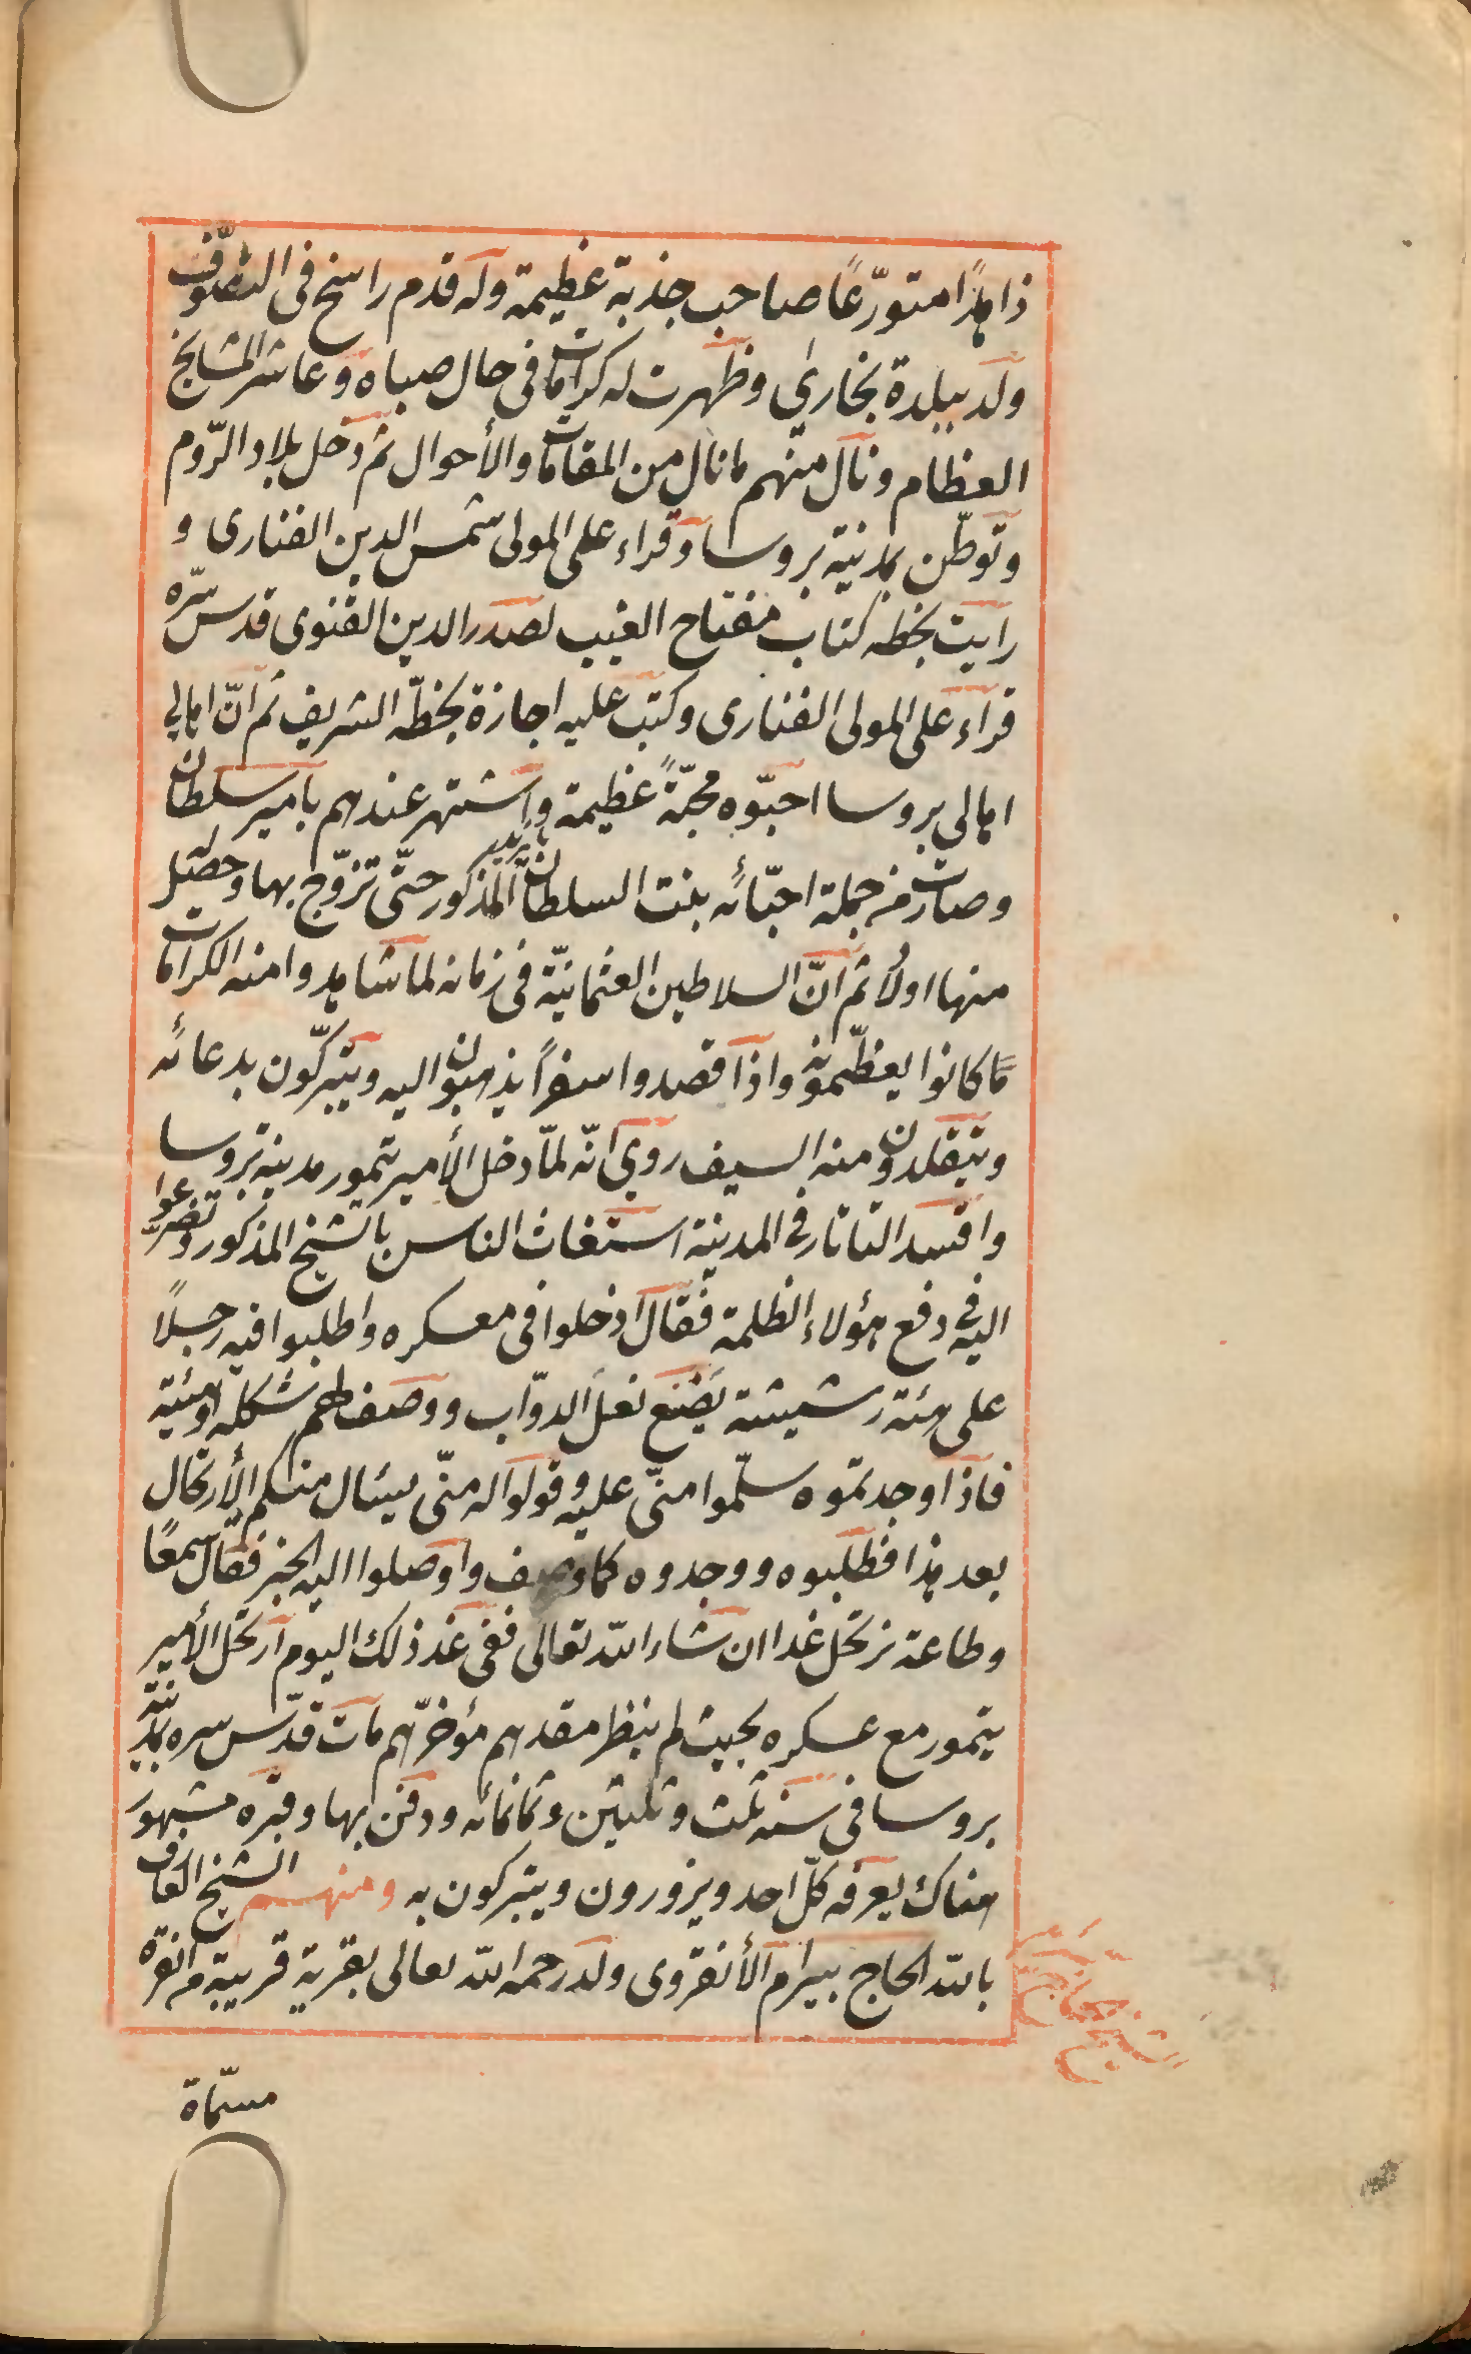 ذاهدًا متورّعًا صاحب جذبة عظيمة وله قدم راسخ فى التصوّف
ولد ببلدة بخارى وظهرت له كرامات فى حال صباه وعاشر المشايخ
العظام ونال منهم ما نال من المقامات والأحوال ثم دخل بلاد الرّوم
وتوطّن بمدنية بروسا وقراء على المولى شمس الدين الفنارى و
رايت بخطه كتاب مفتاح الغيب لصدر الدين القنوى قدس سرّه
قراء على المولى الفنارى وكتب عليه اجازة بخطّه الشريف ثم انّ اهالى
اهالى بروسا احبّوه محبّةً عظيمة واشتهر عندهم بامير سلطان
وصارت من جملة احبّائه بنت السلطان بايزيد المذكور حتّى تزوّج بها وحصل له
منها اولاد ثم انّ السلاطين العثمانيّة فى زمانه لما شاهدوا منه الكرامات
كانوا يعظّمونه واذا قصدوا سفرًا يذهبون اليه ويتبركّون بدعائه
ويتقلدون منه السيف روى انّه لمّا دخل الأمير تيمور مدينة بروسا
وافسد التاتار فى المدينة استغاث الناس بالشيخ المذكور وتضرّعوا
اليه فى دفع هؤلاء الظلمة فقال ادخلوا فى معسكره واطلبوا فيه رجلًا
على هئة رشيشة يَصْنَع نعلَ الدوّاب ووصف لهم شكله وهيئة
فاذا وجدتموه سلّموا منّى عليه وقولوا له منّى يسئال منكم الأرتحال
بعد هذا فطلبوه ووجدوه كما وصف واوصلوا اليه الخبر فقال سمعًا
وطاعة نرتحل غدا ان شاء الله تعالى ففى غد ذلك اليوم ارتحل الأمير
تيمور مع عسكره بحيث لم ينظر مقدهم مؤخرّهم مات قدّس سره بمدينة
بروسا فى سنه ثلث وثلثين وثمانمائه ودفن بها وقبره مشهور
هناك يعرفه كلّ احد ويزورون ويتبركون به ومنهم الشيخ العارف
بالله الحاج بيرام الأنقروى ولد رحمه الله تعالى بقرية قريبة من انقرة
مسمّاة